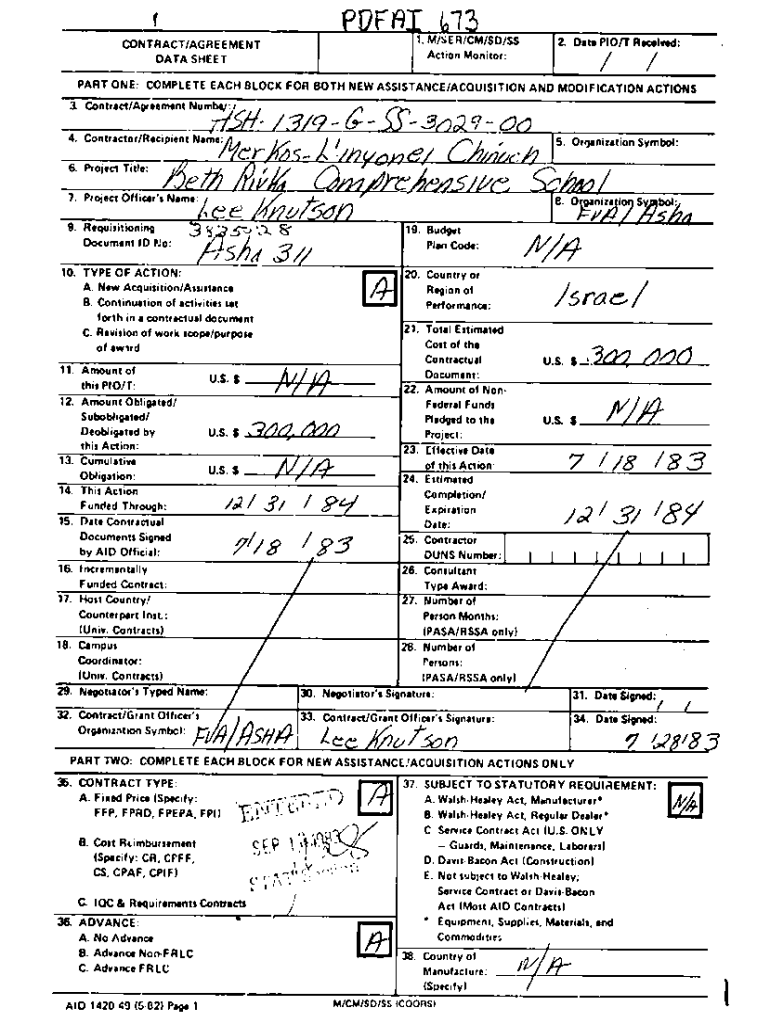 1
PDFAI 673
CONTRACT/AGREEMENT
DATA SHEET
1. M/SER/CM/SD/SS
Action Monitor:
2. Date PIO/T Received:
/ /
PART ONE: COMPLETE EACH BLOCK FOR BOTH NEW ASSISTANCE/ACQUISITION AND MODIFICATION ACTIONS
3. Contract/Agreement Number:
ASH-1319-G-SS-3029-00
4. Contractor/Recipient Name:
Merkos-L'inyonei Chinuch
5. Organization Symbol:
6. Project Title:
Beth Rivka Comprehensive School
7. Project Officer's Name:
Lee Knutson
8. Organization Symbol:
FVA/Asha
9. Requisitioning
Document ID No:
3835028
Asha 311
19. Budget
Plan Code:
N/A
10. TYPE OF ACTION:
A. New Acquisition/Assistance
B. Continuation of activities set
forth in a contractual document
C. Revision of work scope/purpose
of award
A
20. Country or
Region of
Performance:
Israel
21. Total Estimated
Cost of the
Contractual
Document:
U.S. $ 300,000
11. Amount of
this PIO/T:
U.S. $ N/A
22. Amount of Non-
Federal Funds
Pledged to the
Project:
U.S. $ N/A
12. Amount Obligated/
Subobligated/
Deobligated by
this Action:
U.S. $ 300,000
23. Effective Date
of this Action:
7 / 18 / 83
13. Cumulative
Obligation:
U.S. $ N/A
24. Estimated
Completion/
Expiration
Date:
12 / 31 / 84
14. This Action
Funded Through:
12/ 31 / 84
15. Date Contractual
Documents Signed
by AID Official:
7/18 / 83
25. Contractor
DUNS Number:
16. Incrementally
Funded Contract:
26. Consultant
Type Award:
17. Host Country/
Counterpart Inst.:
(Univ. Contracts)
27. Number of
Person Months:
(PASA/RSSA only)
18. Campus
Coordinator:
(Univ. Contracts)
28. Number of
Persons:
(PASA/RSSA only)
29. Negotiator's Typed Name:
30. Negotiator's Signature:
31. Date Signed:
/ /
32. Contract/Grant Officer's
Organization Symbol:
FVA/ASHA
33. Contract/Grant Officer's Signature:
Lee Knutson
34. Date Signed:
7 /28/83
PART TWO: COMPLETE EACH BLOCK FOR NEW ASSISTANCE/ACQUISITION ACTIONS ONLY
35. CONTRACT TYPE:
A. Fixed Price (Specify:
FFP, FPRD, FPEPA, FPI)
B. Cost Reimbursement
(Specify: CR, CPFF,
CS, CPAF, CPIF)
C. IQC & Requirements Contracts
A
ENTERED
SEP
37. SUBJECT TO STATUTORY REQUIREMENT:
A. Walsh-Healey Act, Manufacturer*
B. Walsh-Healey Act, Regular Dealer*
C Service Contract Act (U.S. ONLY
– Guards, Maintenance, Laborers)
D. Davis-Bacon Act (Construction)
E. Not subject to Walsh-Healey;
Service Contract or Davis-Bacon
Act (Most AID Contracts)
* Equipment, Supplies, Materials, and
Commodities
N/A
36. ADVANCE:
A. No Advance
B. Advance Non-FRLC
C. Advance FRLC
A
38. Country of
Manufacture:
(Specify)
N/A
AID 1420 49 (5-82) Page 1
M/CM/SD/SS (COORS)
1